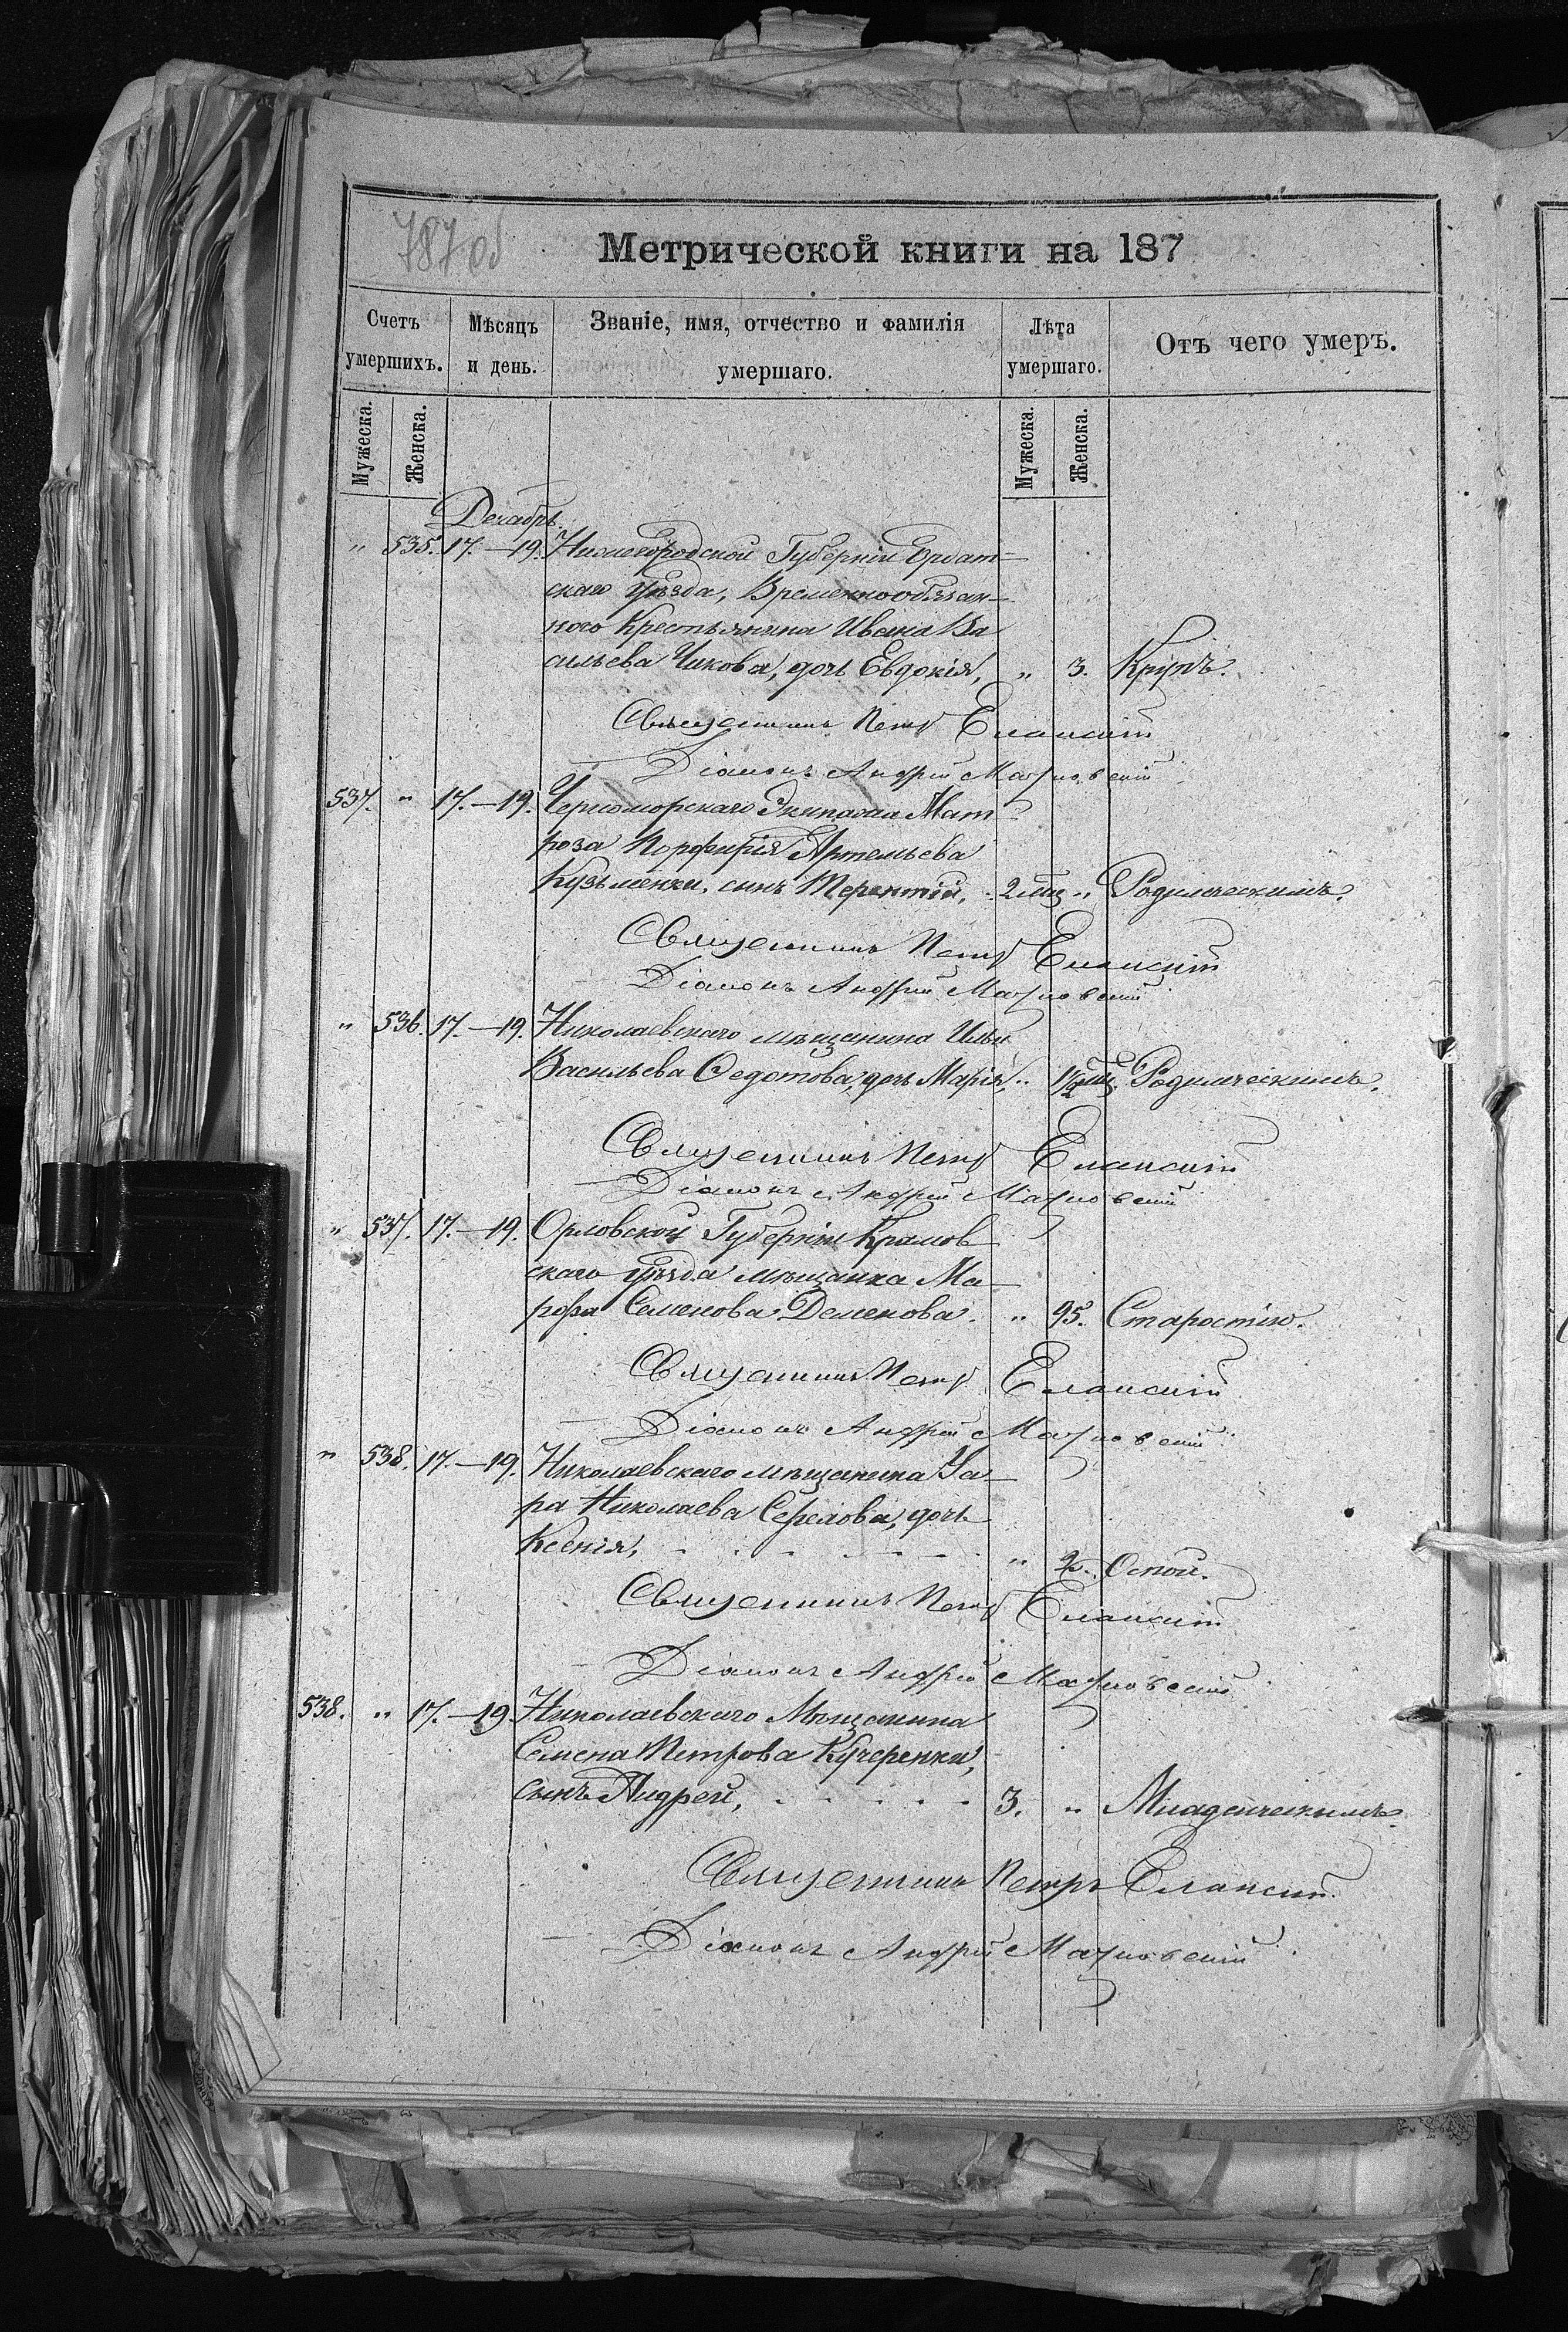 787 об
Метрической книги на 187
Счетъ умершихъ.
Мѣсяцъ и день.
Званіе, имя, отчество и фамилія умершаго.
Лѣта умершаго.
Отъ чего умеръ.
Мужеска.
Женска.
Мужеска.
Женска.
Декабрь.
" 535. 17.—19. Нижегородской Губерніи Ардат-
скаго Уѣзда, Временнообязан-
ного Крестьянина Ивана Ва
сильева Чикова, дочь Евдокія, " 3. Крупъ.
Священникъ Петръ Еланскій
Діаконъ Андрей
537. " 17.—19. Черноморскаго Экипажа Мат
роза Порфирія Артемьева
Кузьменки, сынъ Терентій, 2 мц " Родимческимъ.
Священникъ Петръ Еланскій
Діаконъ Андрей
" 536. 17.—19. Николаевскаго мѣщанина Ильи
Васильева Федотова, дочь Марія, " 1/2 мц. Родимческимъ.
Священникъ Петръ Еланскій
Діаконъ Андрей
" 537. 17.—19. Орловской Губерніи Крамов
скаго Уѣзда мѣщанка Ма-
рфа Семенова Деменова. " 95. Старостію.
Священникъ Петръ Еланскій
Діаконъ Андрей
" 538. 17.—19. Николаевскаго мѣщанина
Николаева дочь
Ксенія, " 2. Оспой.
Священникъ Петръ Еланскій
Діаконъ Андрей
538. " 17.—19. Николаевскаго Мѣщанина
Семена Петрова Кучеренки,
сынъ Андрей, 3. " Младенческимъ.
Священникъ Петръ Еланскій
Діаконъ Андрей